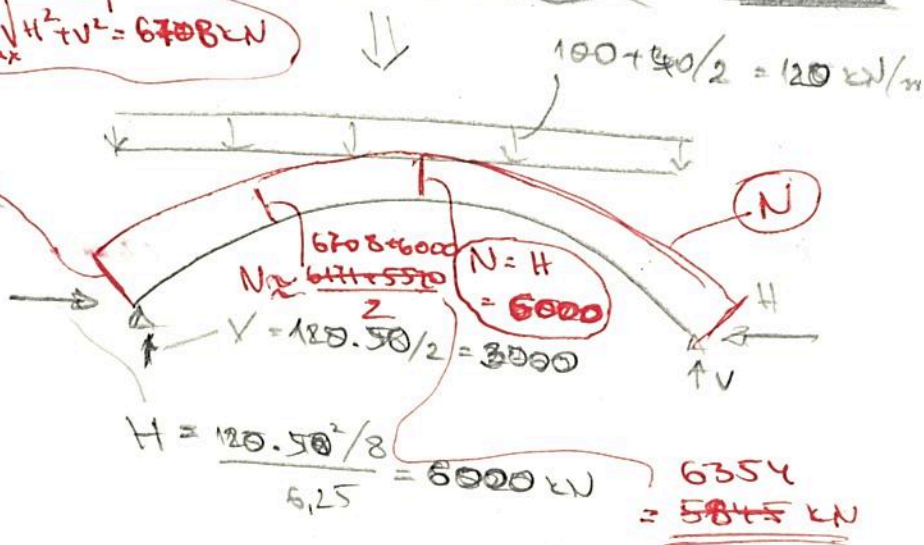 √H²+V² = 6708 kN
100+40/2 = 120 kN/m
N
6708+6000
N ≈ 6171+5520
2
N = H
= 6000
H
V = 120.50/2 = 3000
V
H = 120.50²/8
6,25
= 6000 kN
6354
= 5845 kN